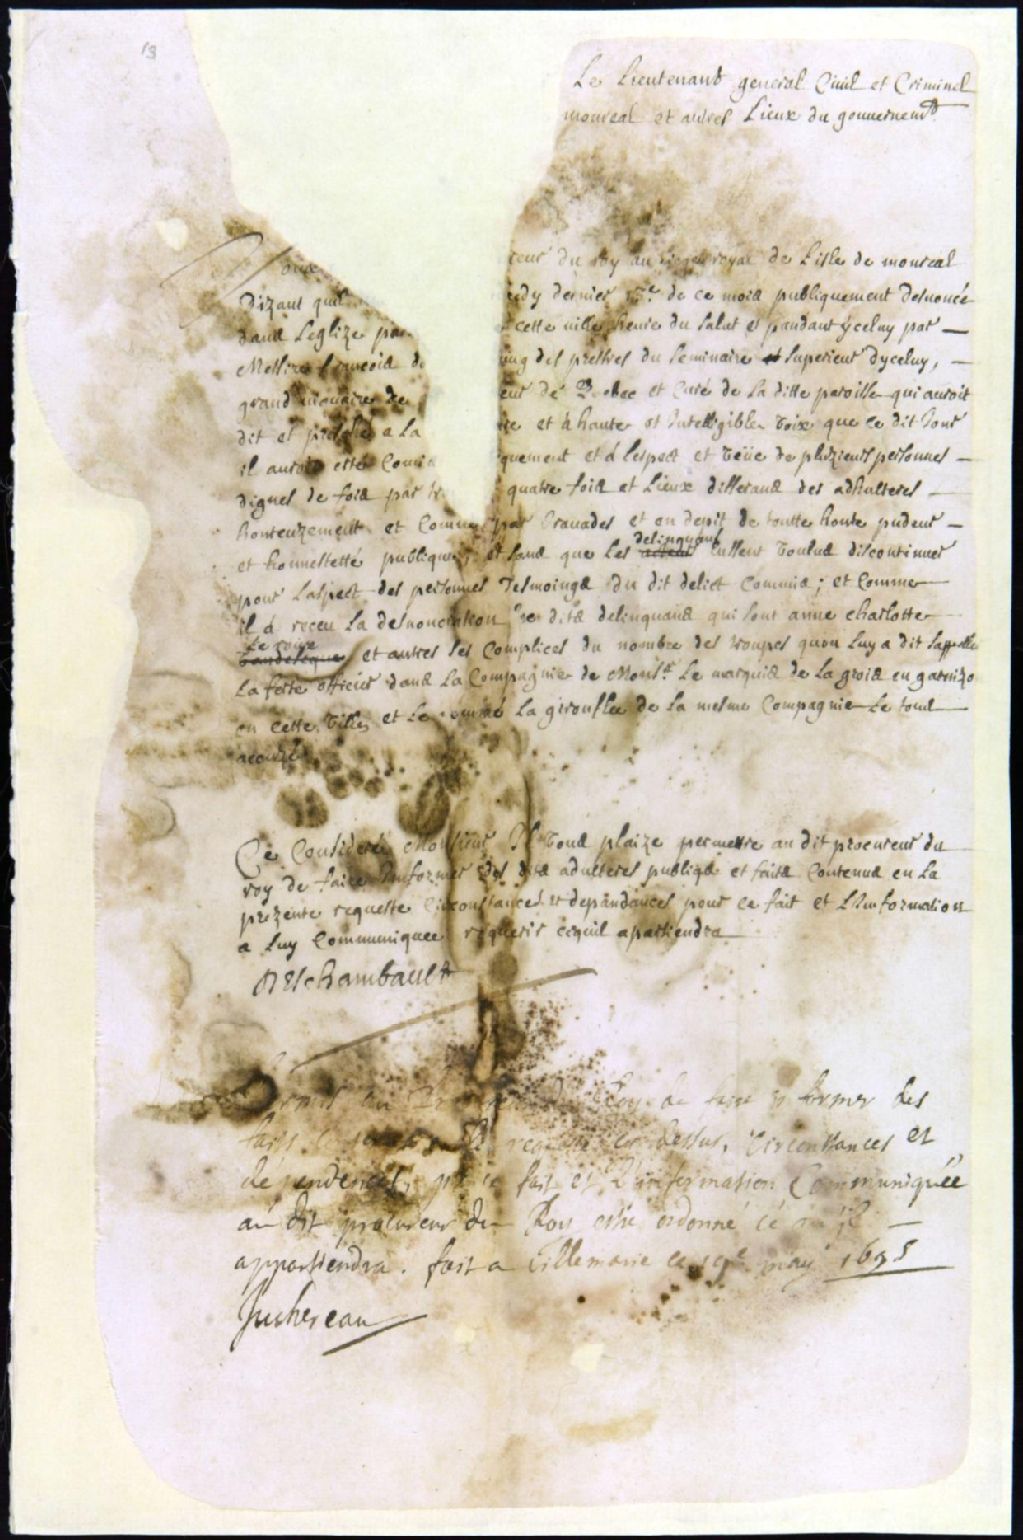 13
Le Lieutenant general Ciuil et Criminel
monreal et autres Lieux du gouuernemt
ceur du roy au siege royal de Lisle de monreal
dizant quil edy dernier 15e de ce mois publiquement desnoncé
dans Leglize par cette uille heure du salut et pandant yceluy par
Messire francois de ung des prestres du seminaire et superieur dyceluy,
grand uicaire de eur de Quebec et Curé de La ditte paroisse qui auroit
dit et presché a La et à haute et Intelligible voix que ce dit Jour
il auroit esté Comis quement et á Lespect et veüe de pluzieurs personnes
dignes de fois par quatre fois et Lieux differans des adhulteres
honteuzement et Comme par brauades et en depit de toutte honte pudeur
et honnestetté publique, et sans que Les delinquans eussent voulus discontinuer
pour Laspect des personnes Tesmoings du dit delict Commis; et Comme
il á receu La desnonciation des dits delinquans qui sont anne charlotte
et autres ses Complices du nombre des troupes quon Luy a dit sappeller
La ferte officier dans La Compagnie de Monsr Le marquis de La grois en garnizo
en cette ville, et Le nommé La girouflee de La mesme Compagnie Le tout
Ce Consideré Monsieur Il vous plaize permettre au dit procureur du
roy de faire Informer des dits adulteres publiqs et faits Contenus en La
prezente requeste Circonstances et dependances pour ce fait et LInformation
a Luy Communiquee requerir cequil apartiendra
Deschambault
permis au Procureur du Roy de faire informer des
faits requeste cy dessus, circonstances et
dépendences, pr ce fait et L'information Communiquée
au dit procureur du Roy estre ordonné cé qu'il
appartiendra. fait a villemarie ce 19e may 1695
Juchereau